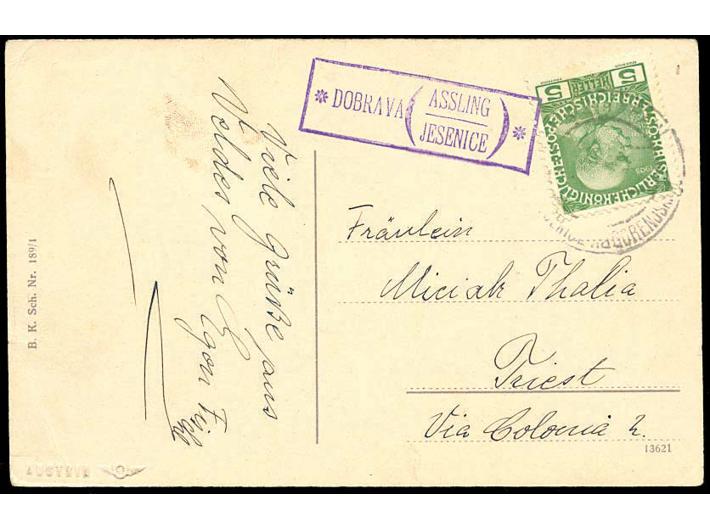 * DOBRAVA (ASSLING / JESENICE) *
5 HELLER 5
Viele Grüße aus
Veldes von Egon
Fräulein
Miciak Thalia
Triest
Via Colonia 2.
B. K. Sch. Nr. 189/1
13621